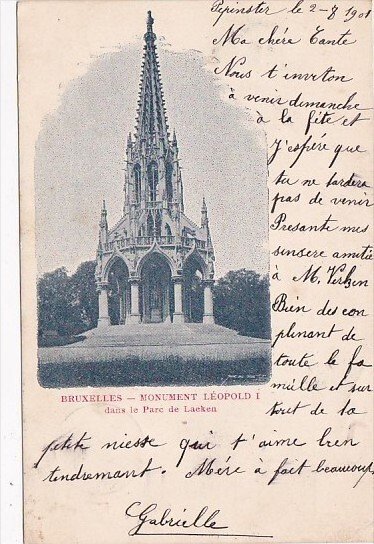 Pepinster le 2-8 1901
Ma chéra Tante
Nous t'inviton
à venir dimanche
à la fête et
J'espére que
tu ne tardera
pas de venir
Presante mes
sinsere amitié
à M. Verken
Bien des con
plinant de
toute le fa
mille et sur
tout de ta
petite niesse qui t'aime bien
tendremant. Mére à fait beaucoup
Gabrielle
BRUXELLES — MONUMENT LÉOPOLD I
dans le Parc de Laeken